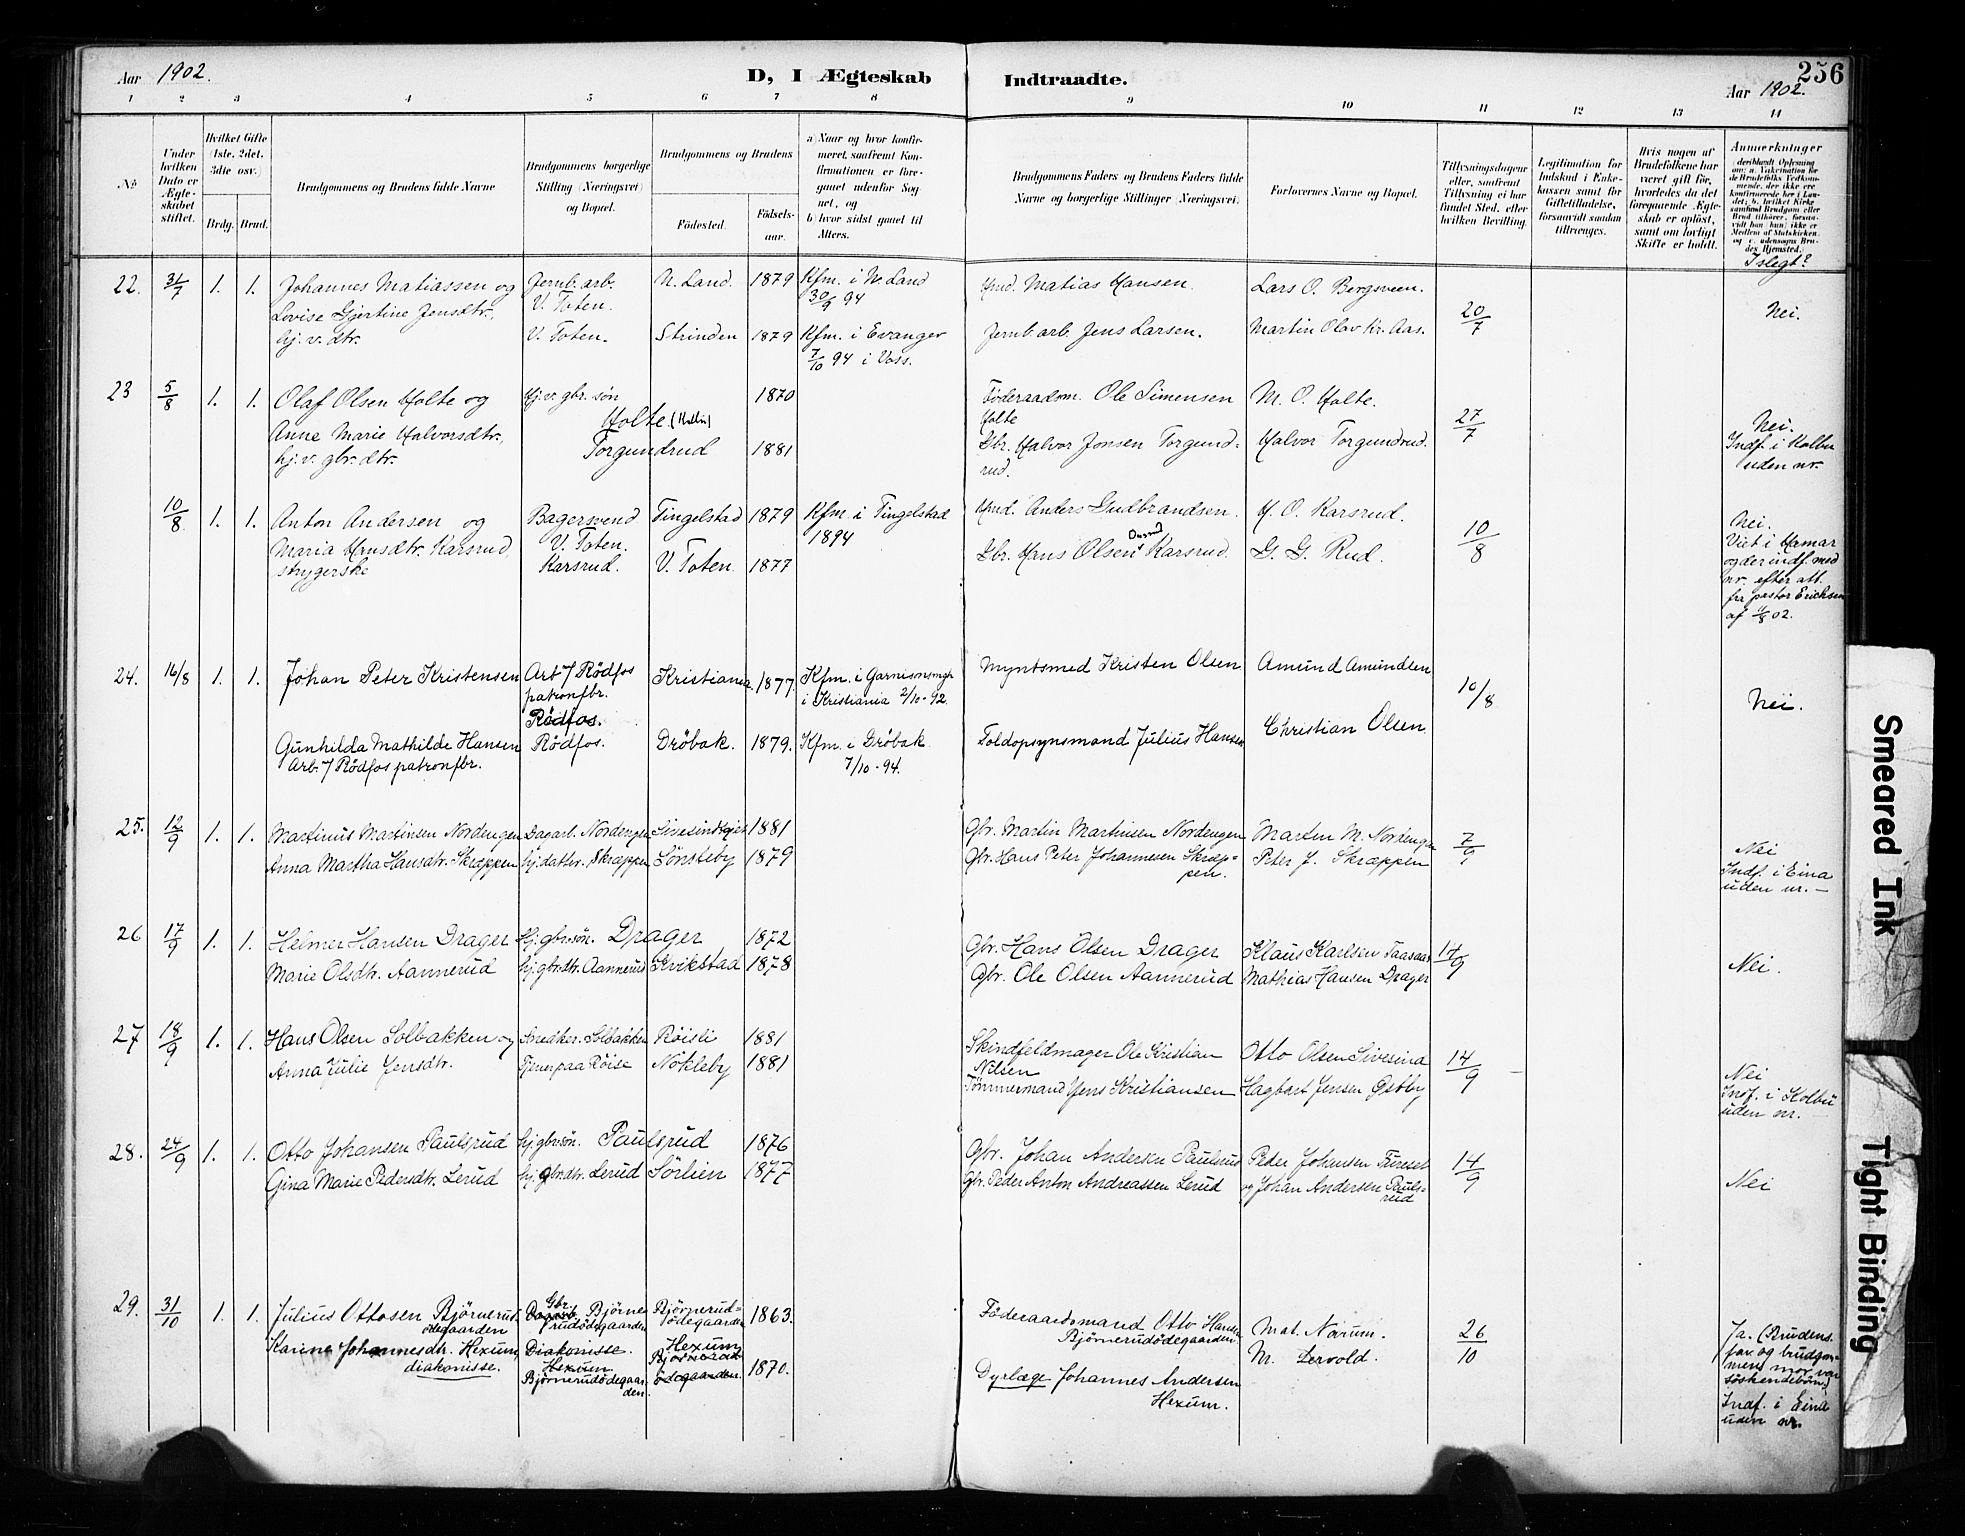 Aar 1902.
D, I Ægteskab Indtraadte.
256
Aar 1902.
1 2 3 4 5 6 7 8 9 10 11 12 13 14
No.
Under hvilken Dato er Ægteskabet stiftet.
Hvilket Gifte (1ste, 2det, 3die osv.)
Brdg. Brud.
Brudgommens og Brudens fulde Navne
Brudgommens borgerlige Stilling (Næringsvei) og Bopæl.
Brudgommens og Brudens
Födested. Födselsaar.
a) Naar og hvor konfirmeret, saafremt Konfirmationen er foregaaet udenfor Sognet, og
b) hvor sidst gaaet til Alters.
Brudgommens Faders og Brudens Faders fulde Navne og borgerlige Stillinger (Næringsvei).
Forlovernes Navne og Bopæl.
Tillysningsdagene eller, saafremt Tillysning ei har fundet Sted, efter hvilken Bevilling.
Legitimation for Indskud i Enkekassen samt for Giftetilladelse, forsaavidt saadan tiltrænges.
Hvis nogen af Brudefolkene har været gift för, hvorledes da det foregaaende Ægteskab er oplöst, samt om lovligt Skifte er holdt.
Anmærkninger
I slegt?
22. 31/7 1. 1. Johannes Matiassen og Jernb. arb. N. Land. 1879 Kfm. i N. Land Hmd. Matias Hansen. Lars O. Bergsveen. 20/7 Nei.
Lovise Gjertine Jensdtr., V. Toten. 30/9 94
hj. v. dtr. V. Toten. Strinden 1879 Kfm. i Evanger Jernb. arb. Jens Larsen. Martin Olav Kr. Aas.
7/10 94 i Voss.
23 5/8 1. 1. Olaf Olsen Holte og Hj. v. gbr. søn 1870 Føderaadsm. Ole Simensen M. O. Holte. 27/7 Nei.
Holte Holte
Anne Marie Halvorsdtr., Torgundrud 1881 Gbr. Halvor Jonsen Torgund- Halvor Torgundrud. Indf. i Kolbu
hj. v. gbr. dtr. rud. uden nr.
10/8 1. 1. Anton Andersen og Bagersvend Tingelstad 1879 Kfm. i Tingelstad Hmd. Anders Gudbrandsen. H. O. Karsrud. 10/8 Nei.
V. Toten. 1894 Viet i Hamar
Maria Hansdtr. Karsrud, Karsrud. V. Toten. 1877 Gbr. Hans Olsen Karsrud. G. G. Rud. og der indf. med
strygerske nr. efter att.
fra pastor Erichsen
af 11/8 02.
24. 16/8 1. 1. Johan Peter Kristensen Arb. v/ Rödfos Kristiania. 1877. Kfm. i Garnisonsmgh. Myntsmed Kristen Olsen Amund Amundsen 10/8 Nei.
patronfbr. i Kristiania 2/10-92.
Rödfos.
Gunhilda Mathilde Hansen Rödfos. Dröbak. 1879. Kfm. i Dröbak Toldopsynsmand Julius Hansen Christian Olsen.
Arb. v/ Rödfos patronfbr. 7/10-94.
25. 12/9 1. 1. Martinus Martinsen Nordengen Dagarb. Nordengen 1881 Gbr. Martin Martinsen Nordengen Marten M. Nordengen 7/9 Nei
Anna Martha Hansdtr. Skræppen Skræppen Sönsteby 1879 Gbr. Hans Peter Johannesen Skræp- Peter J. Skræppen Indf. i Eina
pen. uden nr. —
26 17/9 1. 1. Helmer Hansen Drager Hj. gbr.søn. Drager 1872 Gbr. Hans Olsen Drager Klaus Karlsen Taasaas 14/9 Nei.
Marie Olsdtr. Aannerud hj. gbr.dtr. Aannerud Kvikstad 1878 Gbr. Ole Olsen Aannerud Mathias Hansen Drager
27 18/9 1. 1. Hans Olsen Solbakken og Snedker. Solbakken Röisli 1881 Skindfeldmager Ole Kristian Otto Olsen Sivesind 14/9 Nei
Anna Julie Jensdtr. Tjener paa Röise Nökleby 1881 Nilsen Indf. i Kolbu
Tømmermand Jens Kristiansen Hagbart Jensen Østby uden nr.
28. 24/9 1. 1. Otto Johansen Paulsrud hj. gbr.søn. Paulsrud 1876 Gbr. Johan Andersen Paulsrud Peder Johansen 14/9 Nei
Gina Marie Pedersdtr. Lerud hj. gbr.dtr. Lerud Sörlien 1877 Gbr. Peder Anton Andreassen Lerud og Johan Andersen Pauls-
rud
29. 31/10 1. 1. Julius Ottosen Bjørnerud- Gbr. Bjørne- Bjørnerud- 1863. Föderaadsmand Otto Hansen Mat. Narum. 26/10 Ja. (Brudens
ödegaarden rudödegaarden ödegaarden Bjørnerudödegaarden. far og brudgom-
Karine Johannesdtr. Hexum, Diakonisse. Hexum M. Lervold. mens mor var
diakonisse. Hexum Bjørnerud söskendebörn.)
Bjørnerudödegaar- ödegaarden. 1870. Dyrlæge Johannes Andersen Indf. i Eina
den. Hexum. uden nr.
Smeared Ink
Tight Binding